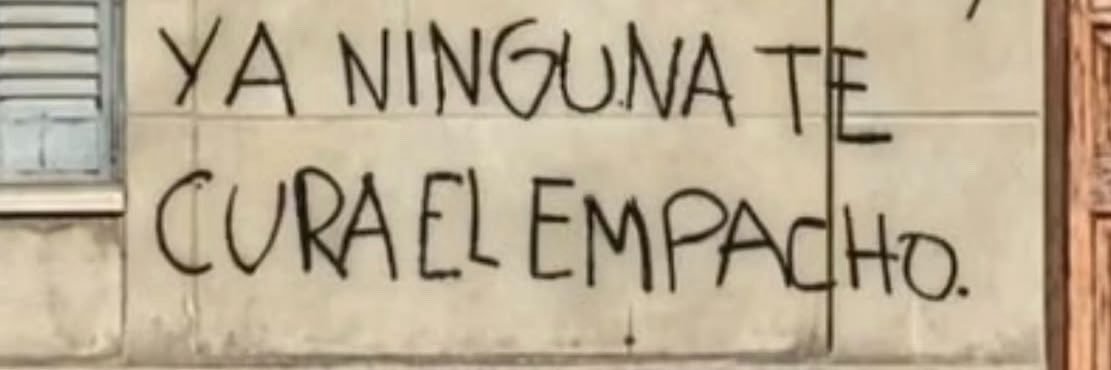 YA NINGUNA TE
CURA EL EMPACHO.